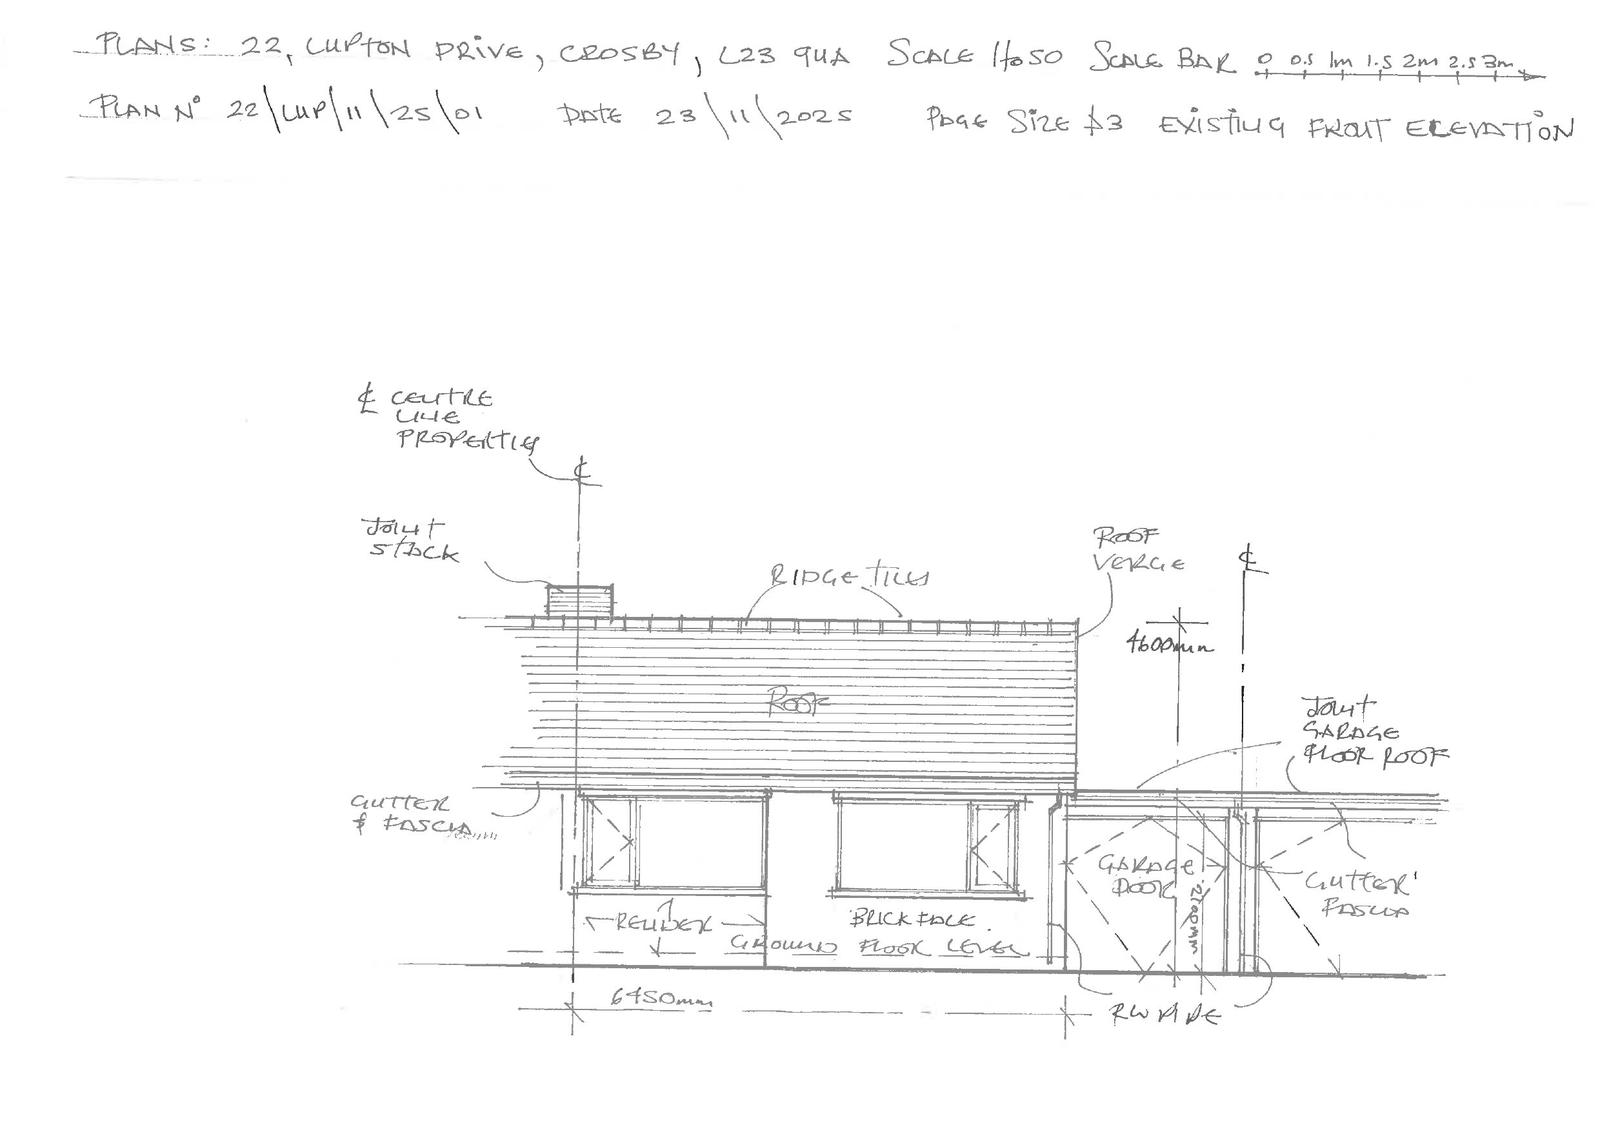 PLANS: 22, LUPTON DRIVE, CROSBY, L23 9UA SCALE 1 to 50 SCALE BAR 0 0.5 1m 1.5 2m 2.5 3m
PLAN No 22/LUP/11/25/01 DATE 23/11/2025 PAGE SIZE A3 EXISTING FRONT ELEVATION
℄ CENTRE
LINE
PROPERTIES
℄
JOINT
STACK
RIDGE TILES
ROOF
VERGE
℄
4600mm
ROOF
JOINT
GARAGE
FLOOR ROOF
GUTTER
& FASCIA
GARAGE
DOOR
2100mm
GUTTER
FASCIA
RENDER
BRICK FACE
GROUND FLOOR LEVEL
6450mm
RW PIPE